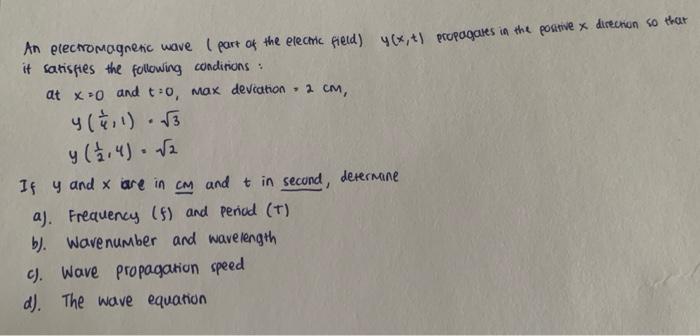 An electromagnetic wave (part of the electric field) y(x,t) propagates in the positive x direction so that
it satisfies the following conditions :
at x=0 and t=0, max deviation = 2 cm,
y(1/4,1) = √3
y(1/2,4) = √2
If y and x are in cm and t in second, determine
a). Frequency (f) and period (T)
b). Wavenumber and wavelength
c). Wave propagation speed
d). The wave equation